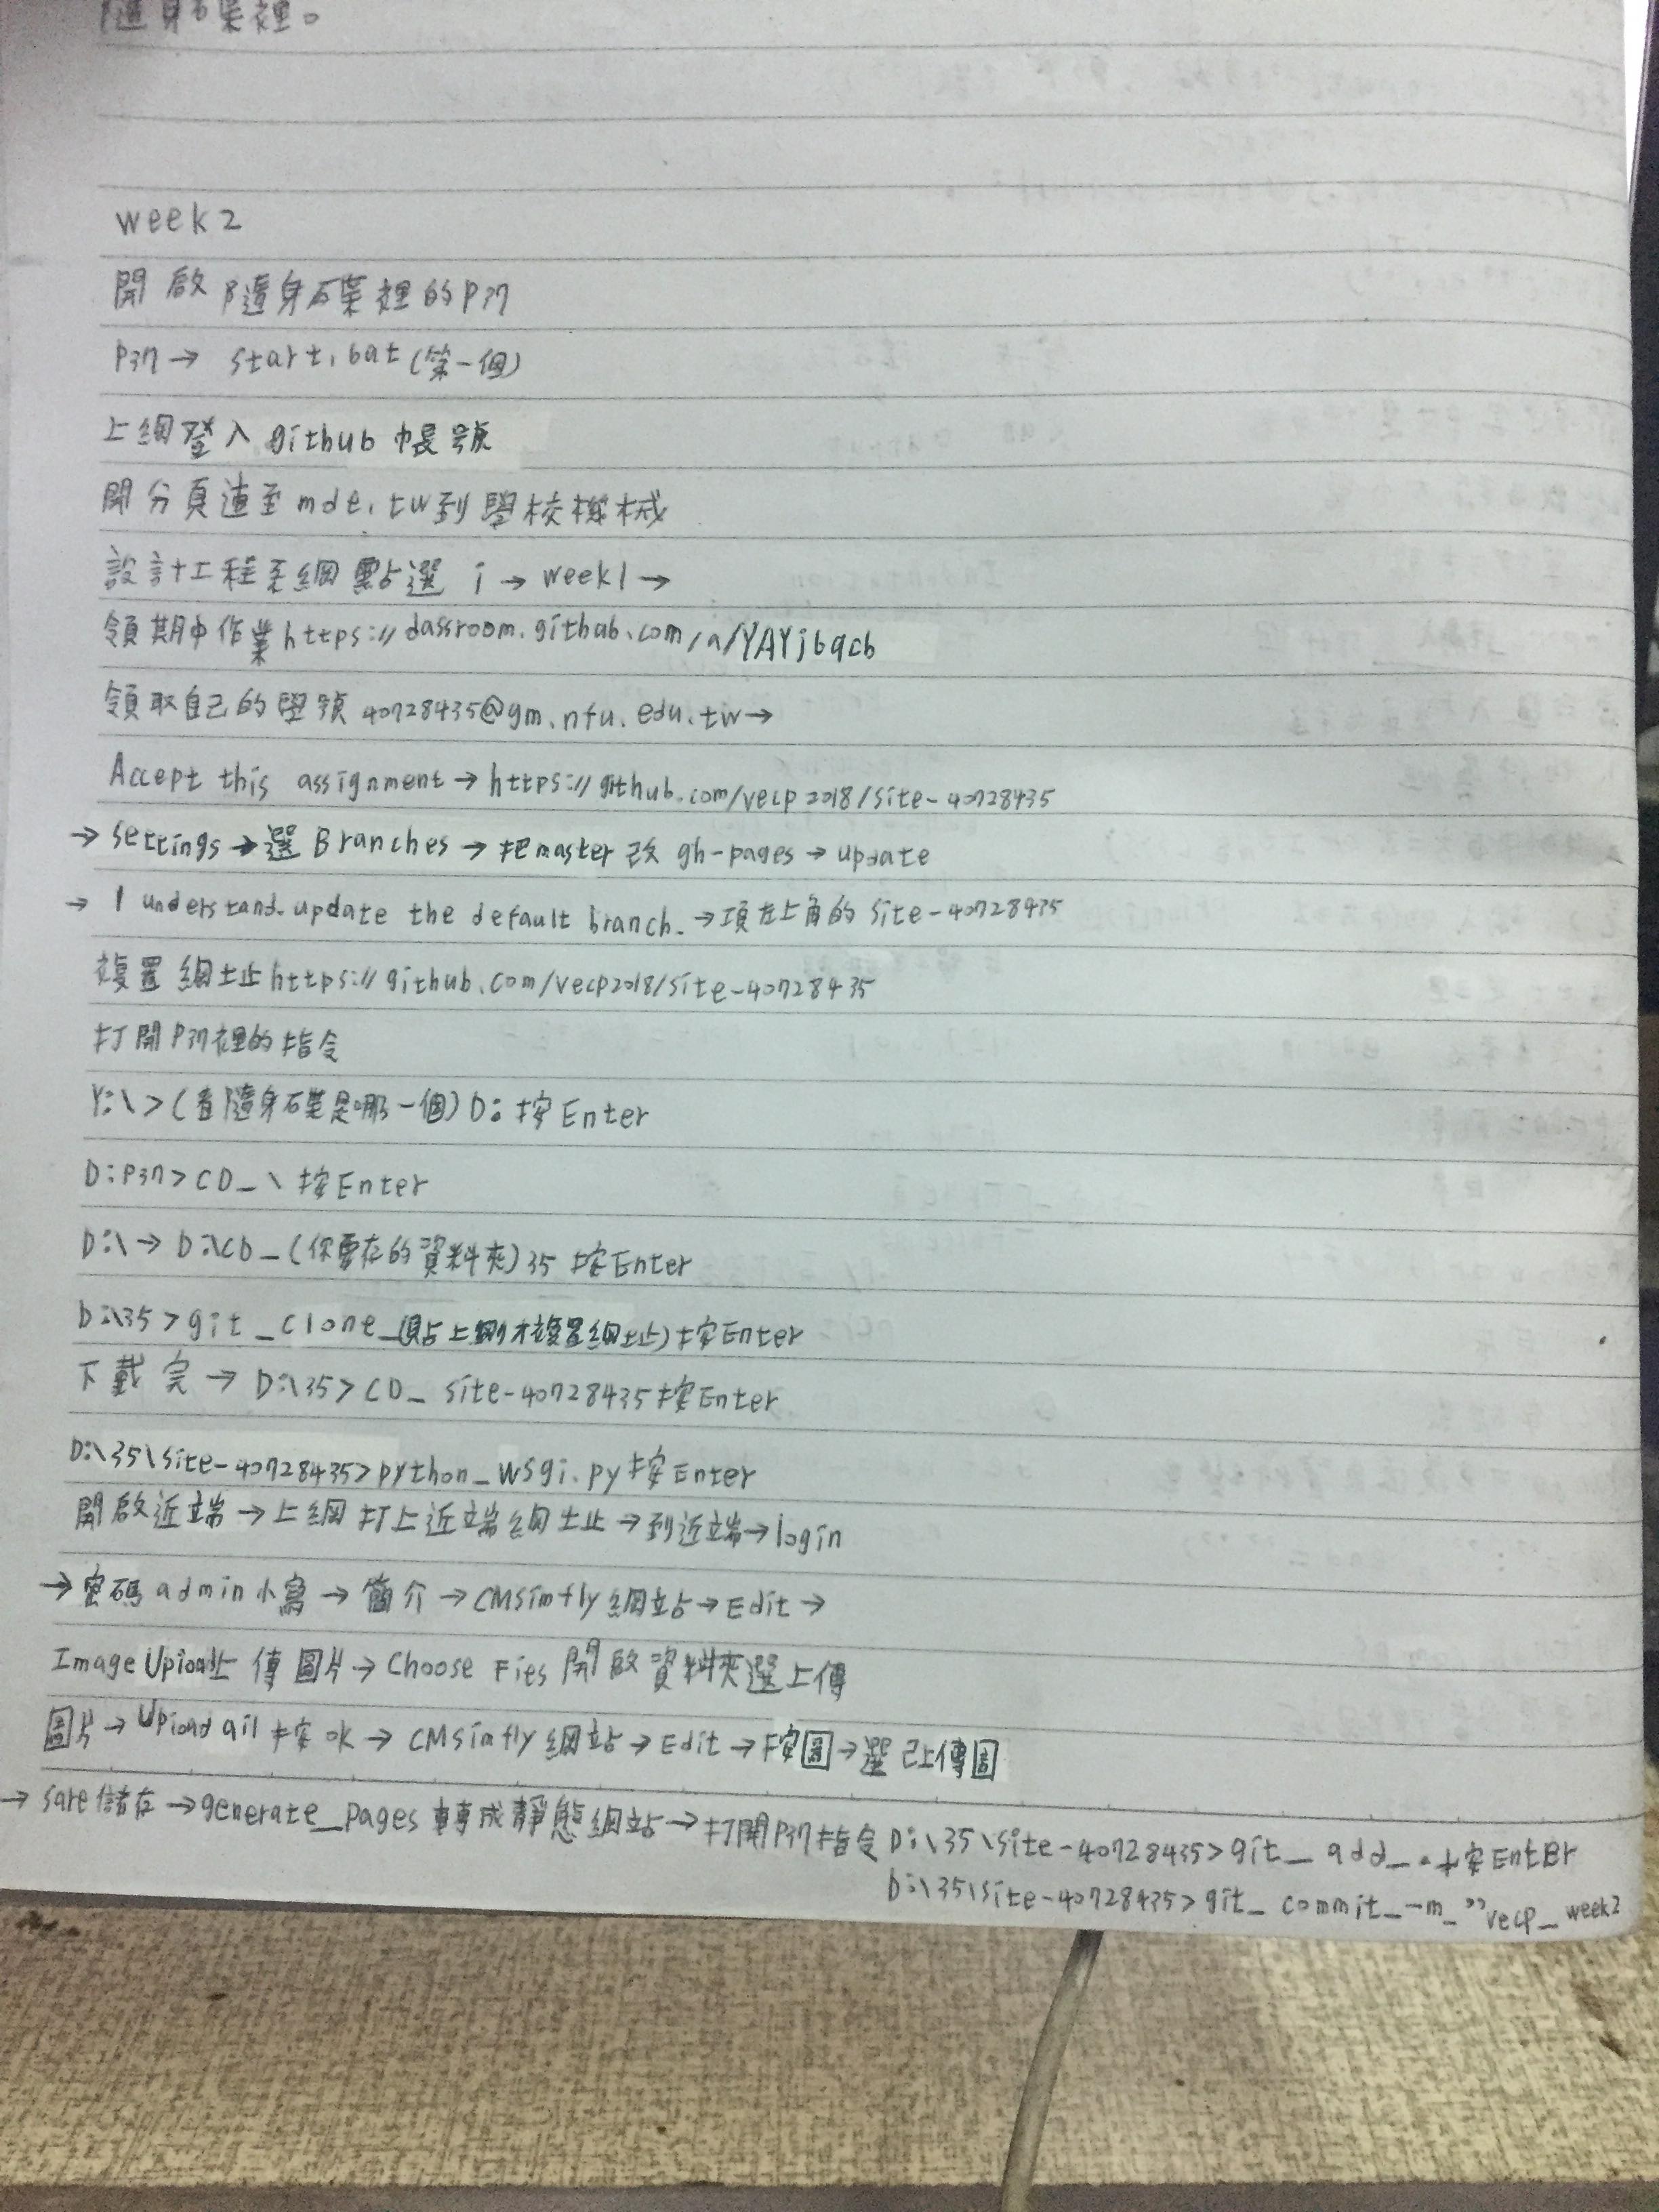 隨身碟裡。
week2
開啟隨身碟裡的P37
P37→ start.bat(第一個)
上網登入github帳號
開分頁連至mde.tw到學校機械
設計工程系網點選 i → week1→
領期中作業https://classroom.github.com/a/YAYjbqcb
領取自己的學號40728435@gm.nfu.edu.tw→
Accept this assignment→https://github.com/vecp2018/site-40728435
→settings→選Branches→把master改gh-pages→update
→ I understand.update the default branch.→項左上角的site-40728435
複置網址https://github.com/vecp2018/site-40728435
打開P37裡的指令
Y:\>(看隨身碟是哪一個)D:按Enter
D:P37>CD_\按Enter
D:\→D:\CD_(你要存的資料夾)35 按Enter
D:\35>git_clone_(貼上剛才複置網址)按Enter
下載完→D:\35>CD_site-40728435按Enter
D:\35\site-40728435>python_wsgi.py按Enter
開啟近端→上網打上近端網址→到近端→login
→密碼admin小寫→簡介→CMSimfly網站→Edit→
Image Upload上傳圖片→Choose Fies開啟資料夾選上傳
圖片→Upload all按ok→CMSimfly網站→Edit→按圖→選已上傳圖
→save儲存→generate_pages轉成靜態網站→打開P37指令D:\35\site-40728435>git_add_.按EntEr
D:\35\site-40728435>git_commit_-m_"vecp_week2